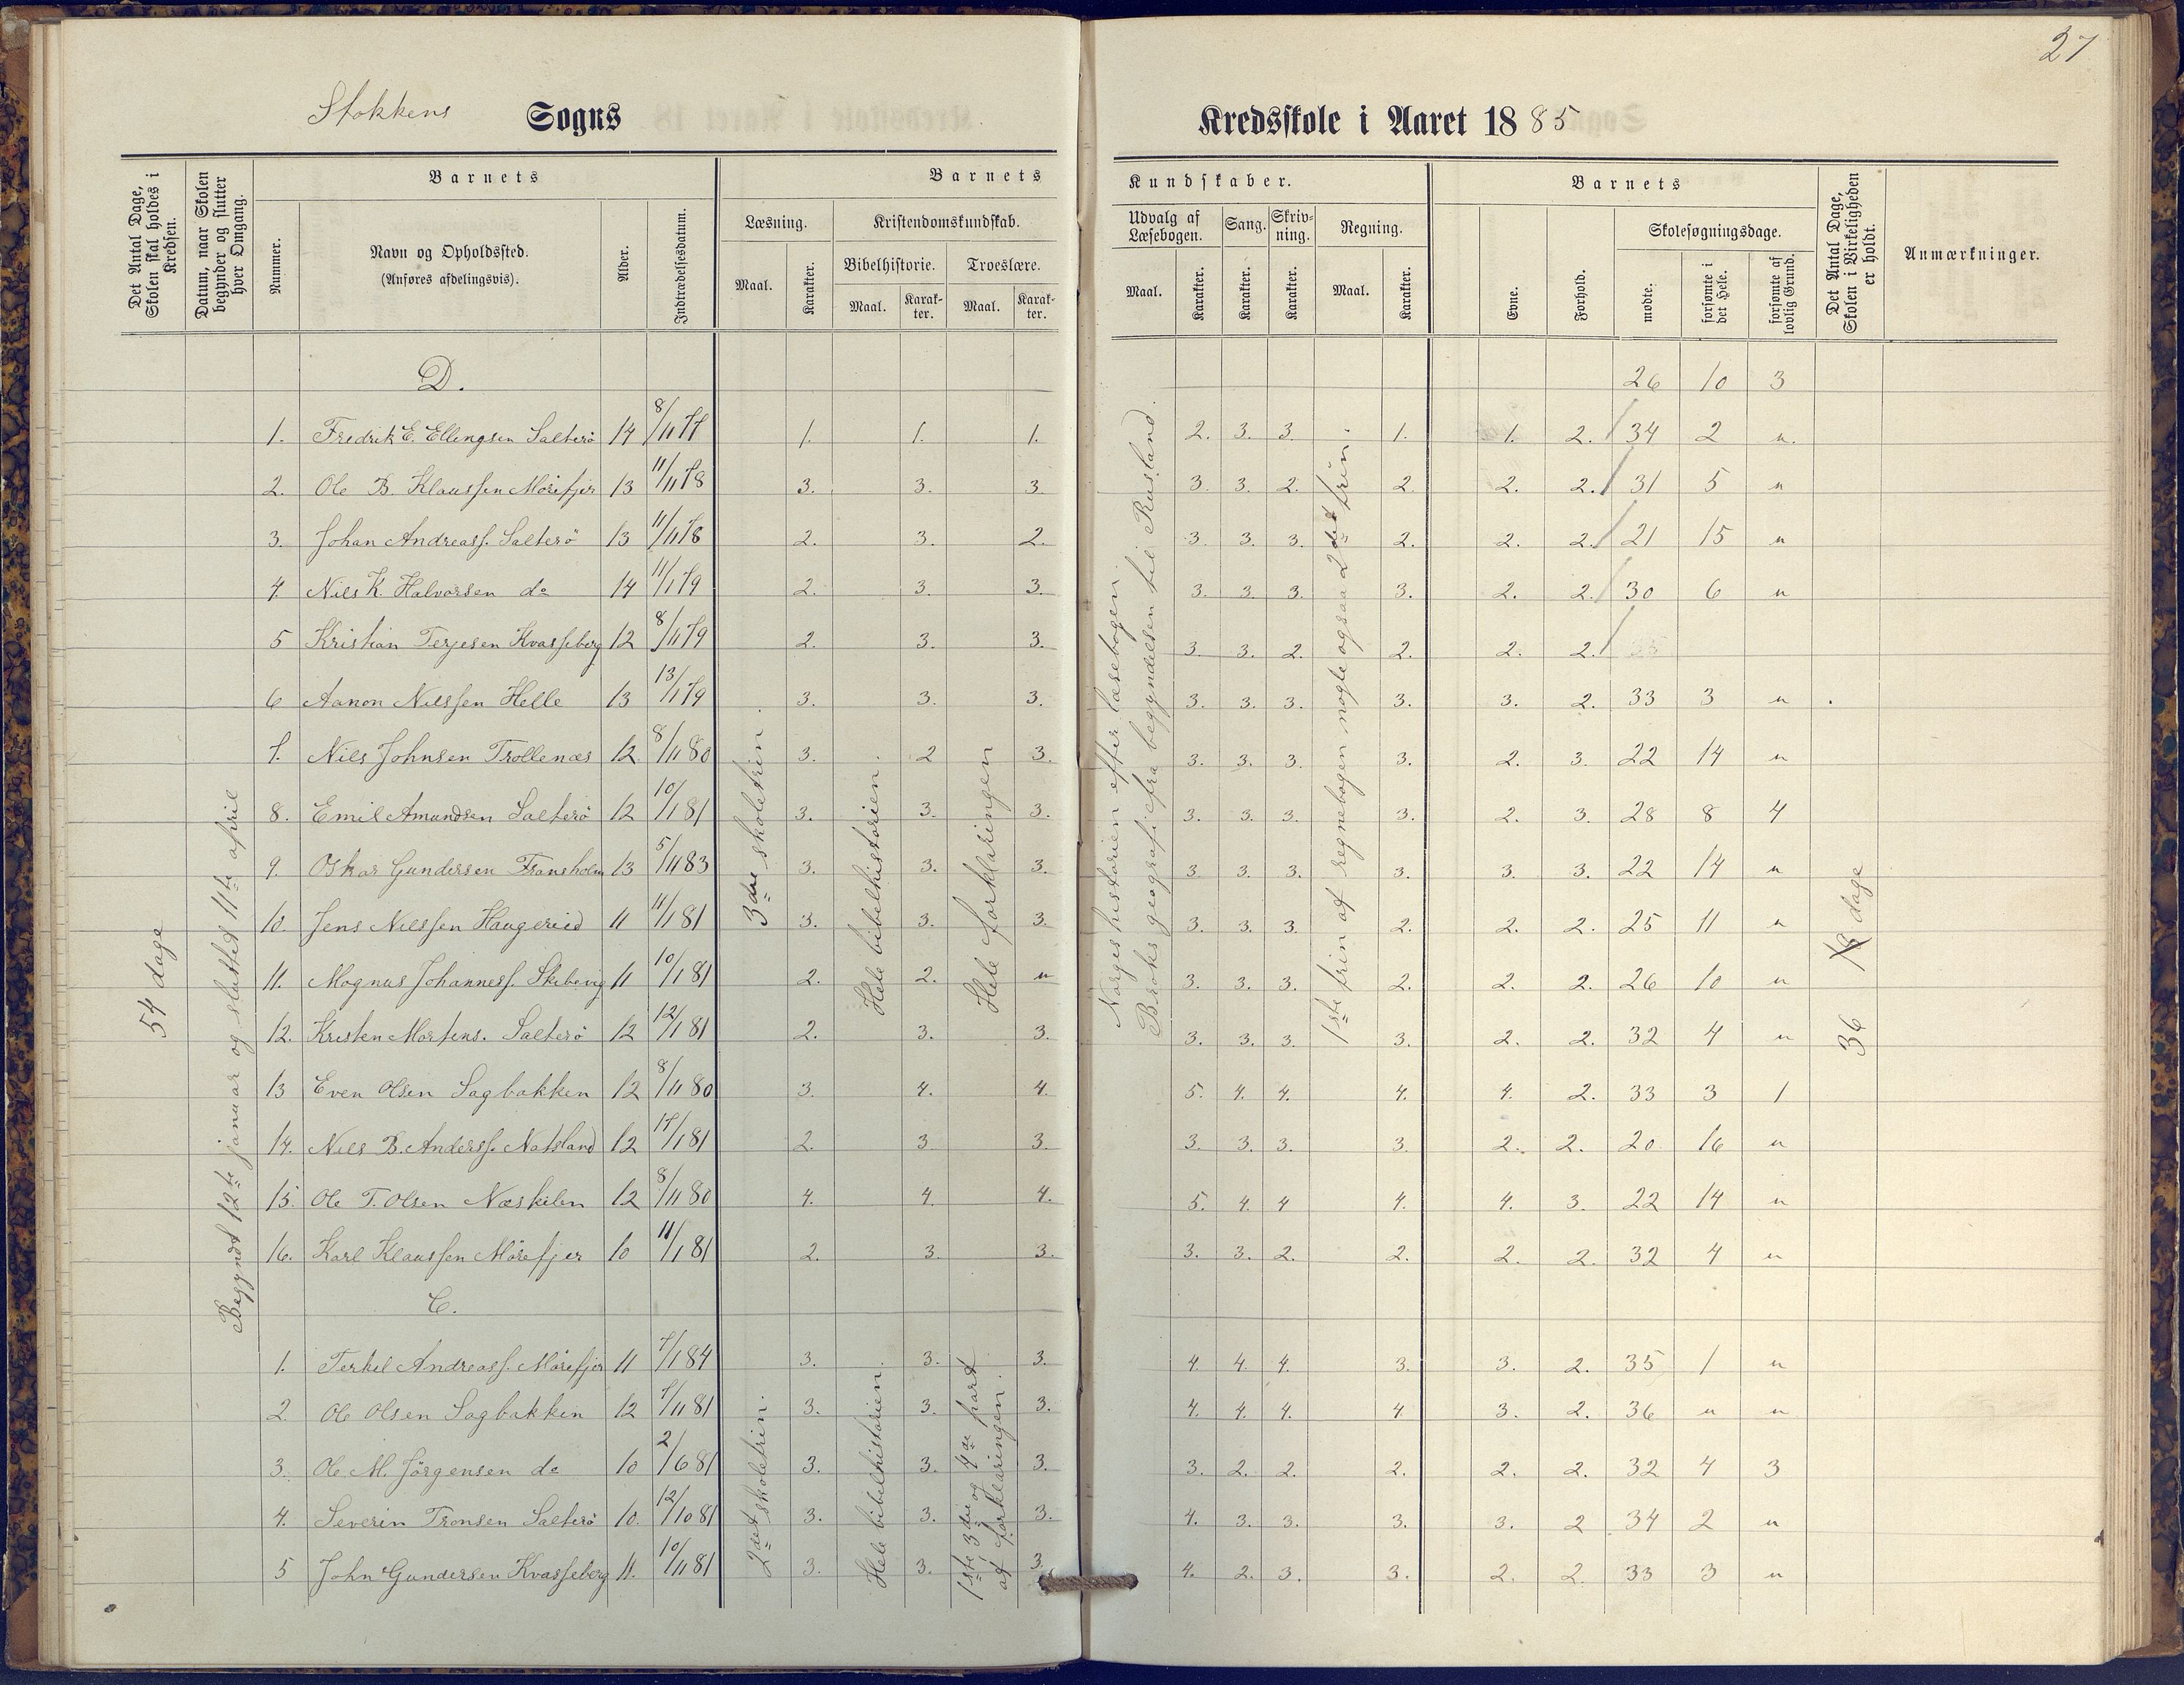 27
Stokkens Sogns Kredsskole i Aaret 1885
Det Antal Dage, Skolen skal holdes i Kredsen.
Datum, naar Skolen begynder og slutter hver Omgang.
Barnets
Nummer.
Navn og Opholdssted.
(Anføres afdelingsvis).
Alder.
Indtrædelsesdatum.
Barnets Kundskaber.
Læsning.
Maal.
Karakter.
Kristendomskundskab.
Bibelhistorie.
Maal.
Karakter.
Troeslære.
Maal.
Karakter.
Udvalg af Læsebogen.
Maal.
Karakter.
Sang.
Karakter.
Skrivning.
Karakter.
Regning.
Maal.
Karakter.
Barnets
Evne.
Forhold.
Skolesøgningsdage.
mødte.
forsømte i det Hele.
forsømte af lovlig Grund.
Det Antal Dage, Skolen i Virkeligheden er holdt.
Anmærkninger.
54 dage
Begyndt 12te januar og sluttet 11te april
3die skoletrin.
Hele bibelhistorien.
Hele forklaringen
Norges historien efter læsebogen.
Broks geografi fra begyndelsen til Rusland.
1ste trin af regnebogen nogle ogsaa 2det trin.
36 dage
D. 26 10 3
1. Fredrik E. Ellingsen Salterö 14 8/11 77 1. 1. 1. 2. 3. 3. 1. 1. 2. 34 2 "
2. Ole B. Klaussen Mörefjer 13 11/11 78 3. 3. 3. 3. 3. 2. 2. 2. 2. 31 5 "
3. Johan Andreass. Salterö 13 11/11 78 2. 3. 2. 3. 3. 3. 2. 2. 2. 21 15 "
4. Nils K. Halvorsen do 14 11/1 79 2. 3. 3. 3. 3. 3. 3. 2. 2. 30 6 "
5 Kristian Terjesen Kvasseberg 12 8/11 79 2. 3. 3. 3. 3. 2. 2. 2. 2.
6 Aanon Nilssen Helle 13 13/1 79 3. 3. 3. 3. 3. 3. 3. 3. 2. 33 3 "
7. Nils Johnsen Trollenæs 12 8/11 80 3. 2 3. 3. 3. 3. 3. 2. 3. 22 14 "
8. Emil Amundsen Salterö 12 10/1 81 3. 3. 3. 3. 3. 3. 3. 2. 3. 28 8 4
9. Oskar Gundersen Fransholm 13 5/11 83 3. 3. 3. 3. 3. 3. 3. 3. 3. 22 14 "
10. Jens Nilssen Haugereid 11 11/1 81 3. 3. 3. 3. 3. 3. 2. 2. 2. 25 11 "
11. Magnus Johanness. Skibevig 11 10/1 81 2. 2. " 3. 3. 3. 2. 2. 2. 26 10 "
12. Kristen Mortens. Salterö 12 12/1 81 2. 3. 3. 3. 3. 3. 3. 2. 2. 32 4 "
13 Even Olsen Sagbakken 12 8/11 80 3. 4. 4. 5. 4. 4. 4. 4. 2. 33 3 1
14. Nils B. Anderss. Natvland 12 17/1 81 2. 3. 3. 3. 3. 3. 3. 2. 2. 20 16 "
15. Ole T. Olsen Næskilen 12 8/11 80 4. 4. 4. 5. 4. 4 4. 4. 3. 22 14 "
16. Karl Klaussen Mörefjer 10 11/1 81 2. 3. 3. 3. 3. 2. 2. 2. 2. 32 4 "
C.
2det skoletrin.
Hele bibelhistorien
1ste 3die og 4de part
af forklaringen.
1. Terkel Andreass. Mörefjer 11 7/1 84 3. 3. 3. 4. 4. 4. 3. 3. 2. 35 1 "
2 Ole Olsen Sagbakken 12 7/11 81 3. 3. 3. 4. 4. 4. 4 3. 2. 36 " "
3. Ole M. Jörgensen do 10 2/6 81 3. 3. 3. 3. 2. 2. 2. 2. 2. 32 4 3
4. Severin Tronsen Salterö 10. 12/10 81 3. 3. 3. 4. 3. 3. 3. 3. 2 34 2 "
5 John Gundersen Kvasseberg 11. 10/11 81 3. 3. 3. 4. 2. 3. 3. 2. 2. 33 3 "